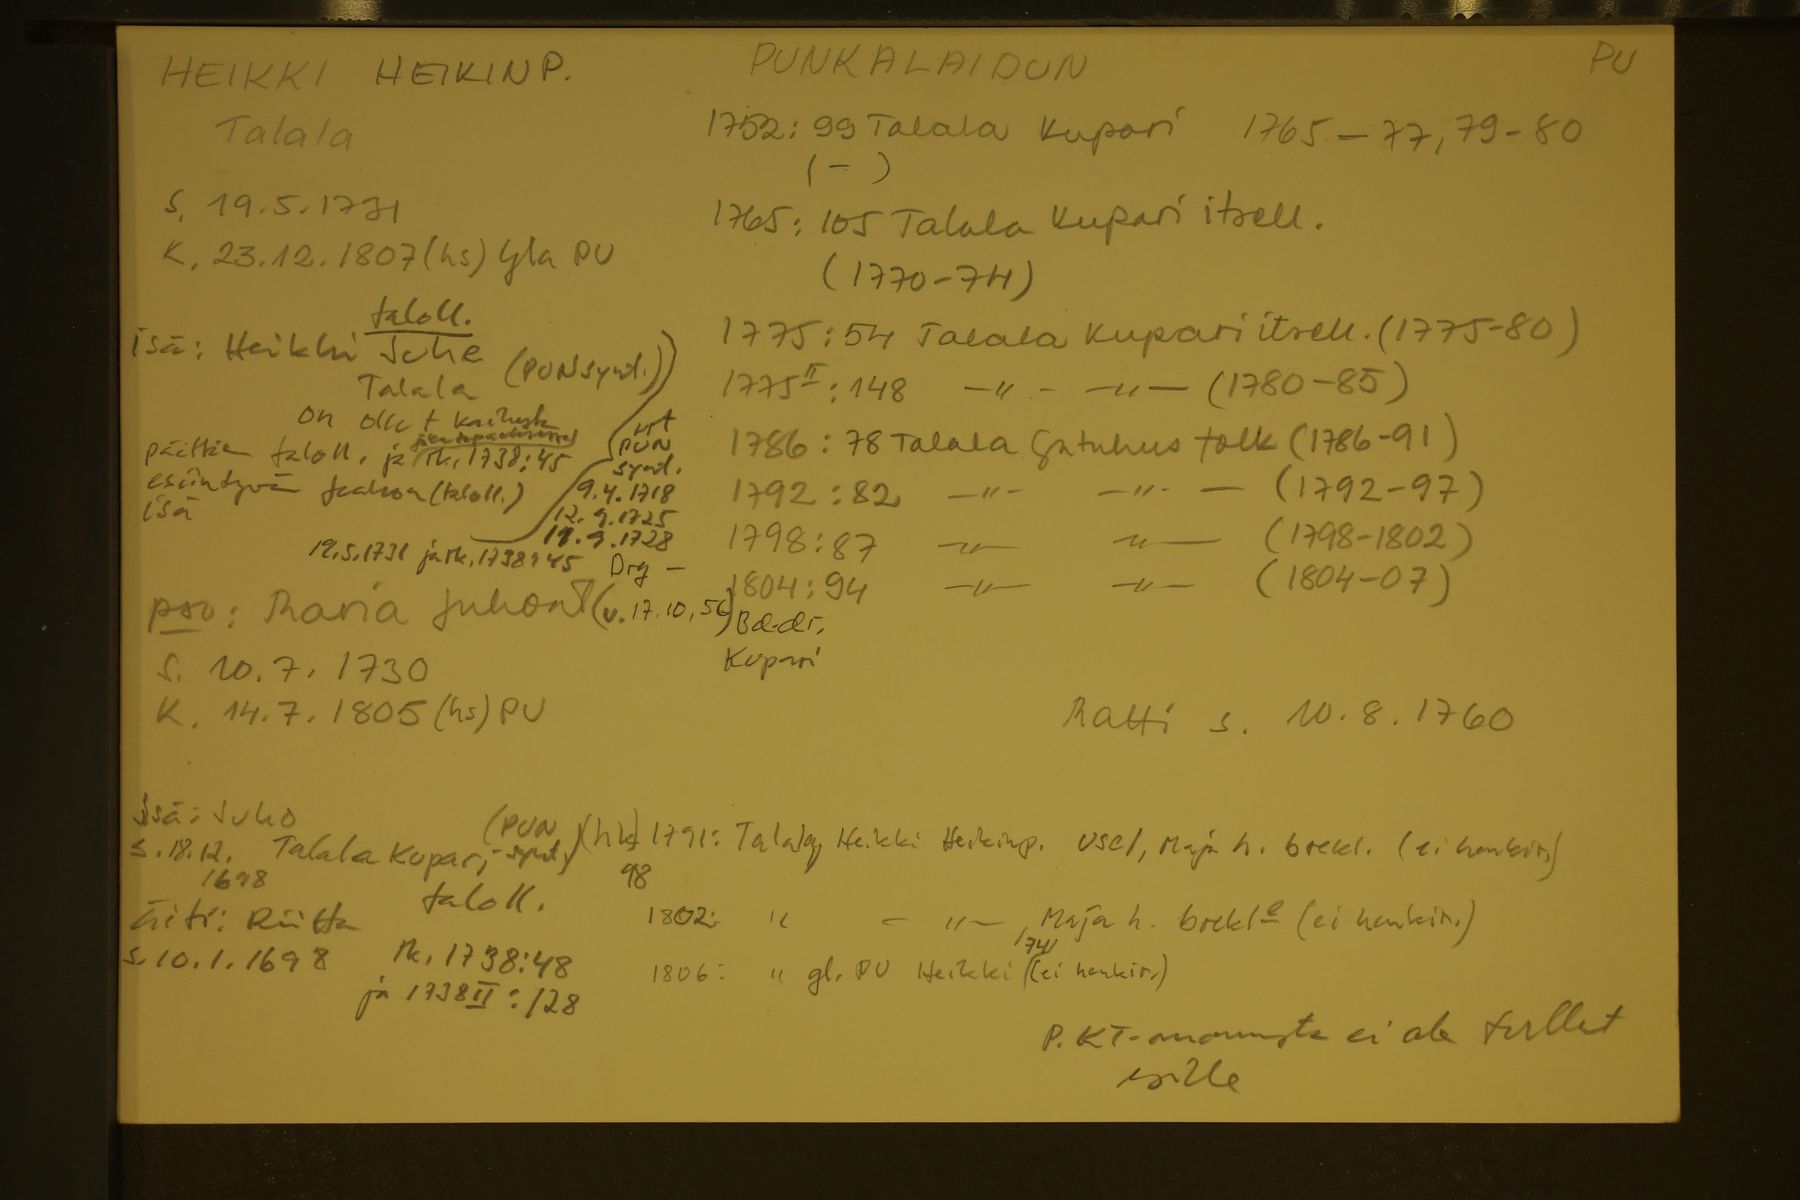 HEIKKI HEIKINP. PUNKALAIDUN PU
Talala
1752: 99 Talala Kupari 1765-77, 79-80
(-)
s. 19.5.1731
1765: 105 Talala Kupari itsell.
K. 23.12.1807 (hs) PU
(1770-74)
taloll.
isä: Heikki Juhe
Talala (PUN synt.)
1775: 54 Talala Kupari itsell. (1775-80)
1775 II: 148 -"- -"- (1780-85)
on ollut
päättäen taloll. ja rk. 1738:45
esiintyvän (taloll.)
isä
vrt
PUN
synt.
9.4.1718
12.9.1725
19.9.1728
19.5.1731 ja rk. 1738:45 Drg -
1786: 78 Talala folk (1786-91)
1792: 82 -"- -"- (1792-97)
1798: 87 -"- -"- (1798-1802)
1804: 94 -"- -"- (1804-07)
pso: Maria Juhont (v. 17.10.56)
Kupari
s. 10.7.1730
K. 14.7.1805 (hs) PU
Matti s. 10.8.1760
isä: Juho
s. 18.12.1698 Talala Kupari, (PUN synt.)
taloll.
äiti: Riitta
s. 10.1.1698 rk. 1738:48
ja 1738 II: 128
(hk) 1791: Talala Heikki Heikinp. Maja h. (ei henkir.)
98
1802: " -"- , Maja h. (ei henkir.)
1741
1806: " gl. PU Heikki (ei henkir.)
P. KT- ei ole tullut
esille